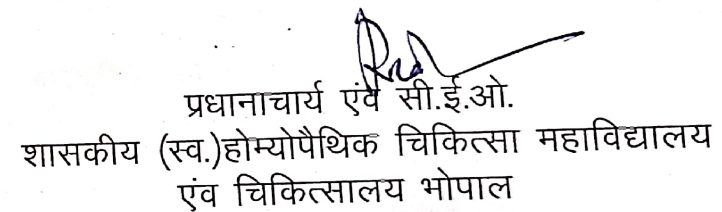 प्रधानाचार्य एंव सी.ई.ओ.
शासकीय (स्व.)होम्योपैथिक चिकित्सा महाविद्यालय
एंव चिकित्सालय भोपाल